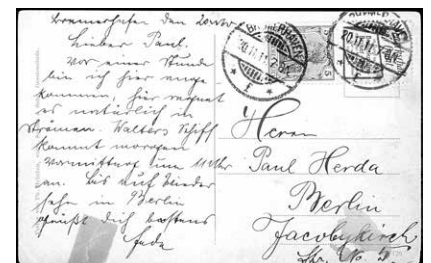 Bremerhafen den 20.11.11
Lieber Paul,
vor einer Stunde
bin ich hier ange
kommen, hier regnet
es natürlich in
Strömen. Walters Schiff
kommt morgen
vormittag um 11 Uhr
an. Bis auf Wieder
sehn in Berlin
grüßt dich bestens
BREMERHAVEN
20.11.11
Herrn
Paul Herda
Berlin
Jacobykirch
Str. No. 5